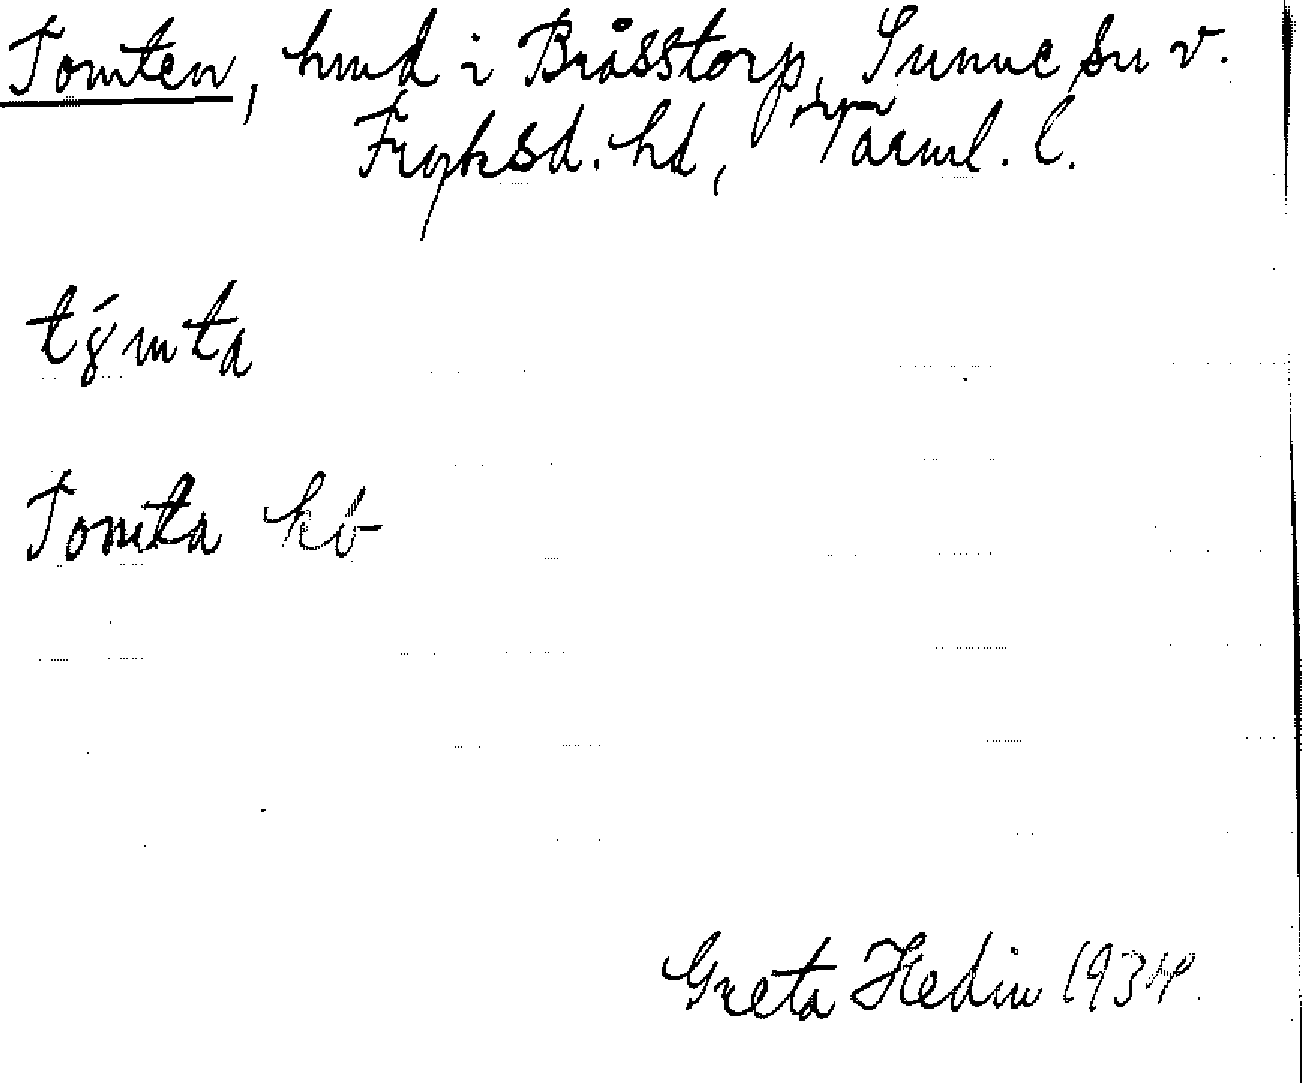 Tomten, hmd i Bråsstorp, Sunne sn v.
Fryksd. hd, Värml. l.
tómta
Tomta kb
Greta Hedin 1934.